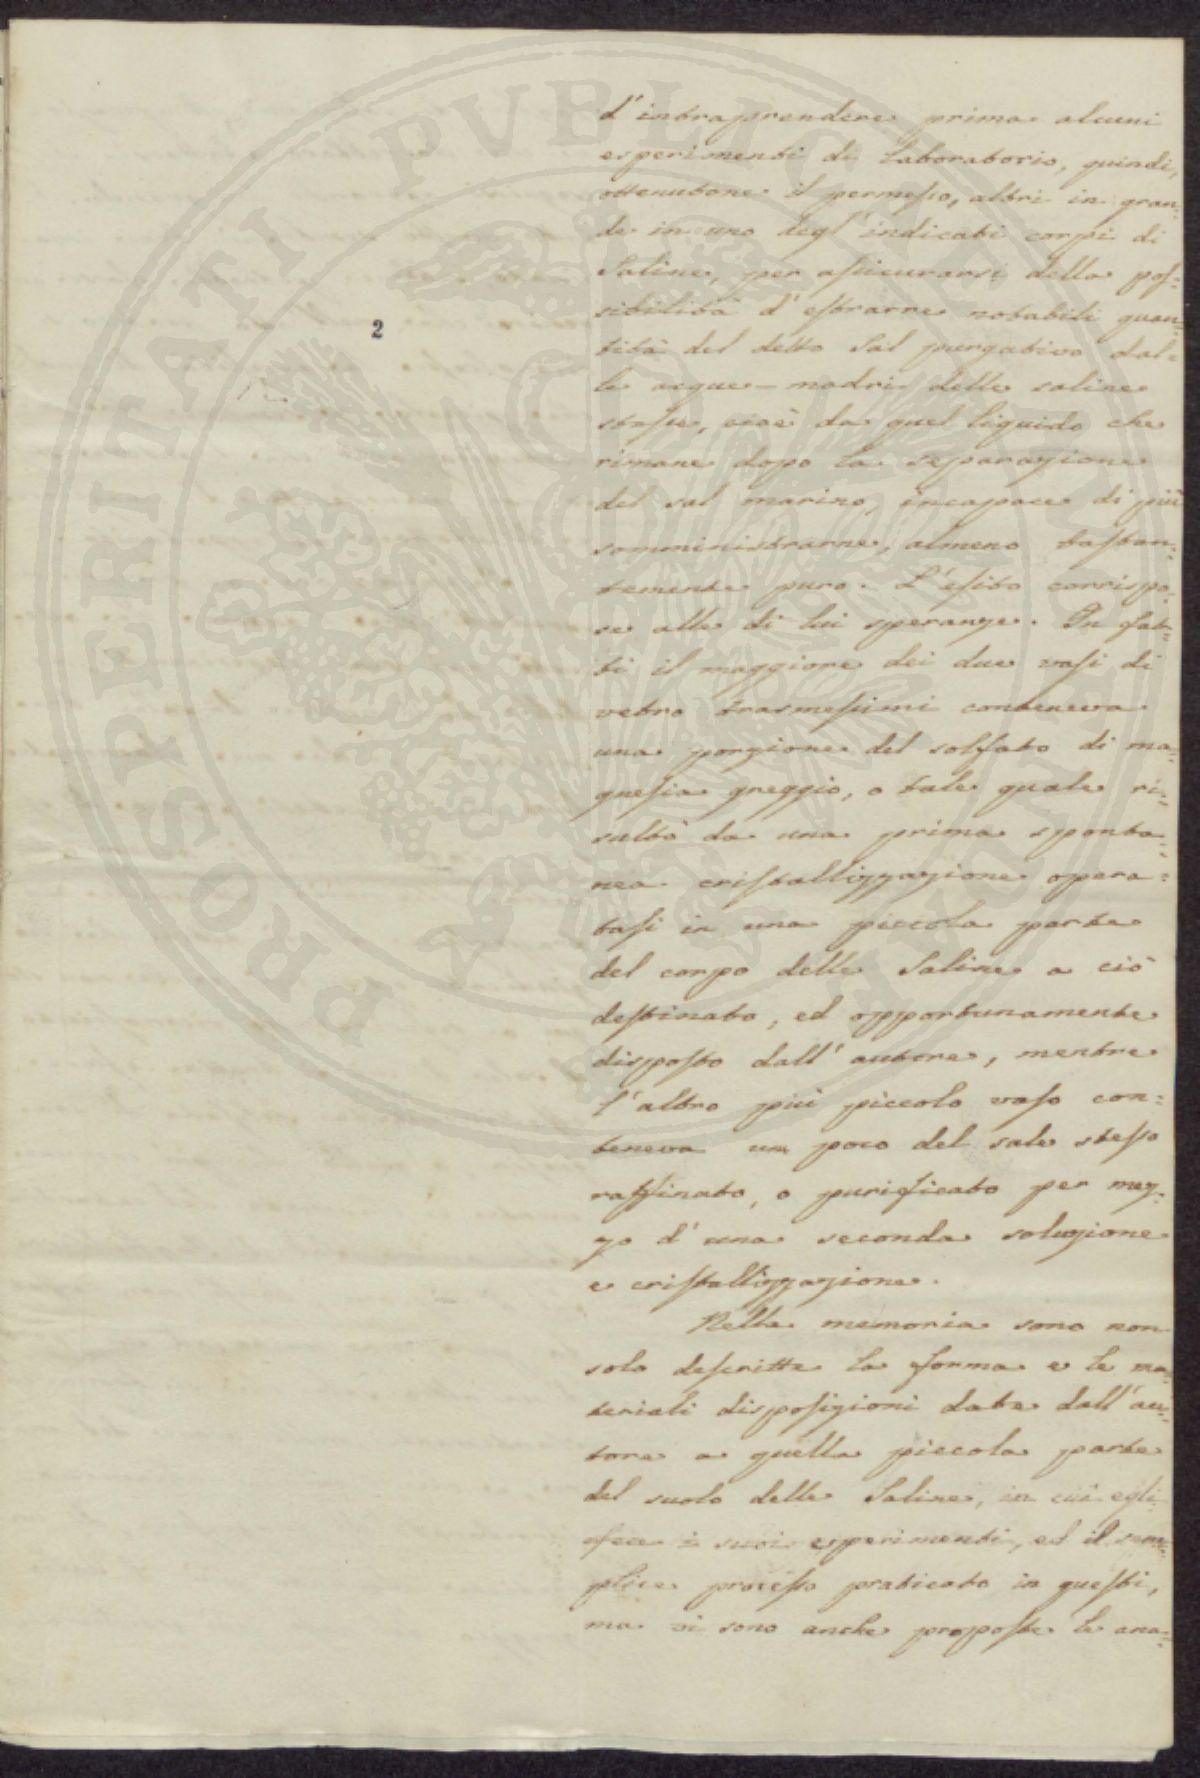 d'intraprendere prima alcuni
esperimenti di Laboratorio, quindi,
ottenutone il permesso, altri in gran=
de in uno degl'indicati corpi di
Saline, per assicurarsi della pos=
sibilità d'estrarre notabili quan=
tità del detto Sal purgativo dal=
le acque-madri delle saline
stesse, cioè da quel liquido che
rimane dopo la separazione
del sal marino, incapace di più
somministrarne, almeno bastan=
temente puro. L'esito corrispo=
se alle di lui speranze. In fat=
ti il maggiore dei due vasi di
vetro trasmessimi conteneva
una porzione del solfato di ma=
gnesia greggio, o tale quale ri=
sultò da una prima sponta=
nea cristallizzazione opera=
tasi in una piccola parte
del corpo delle Saline a ciò
destinato, ed opportunamente
disposto dall'autore, mentre
l'altro più piccolo vaso con=
teneva un poco del sale stesso
raffinato, o purificato per mez=
zo d'una seconda soluzione
e cristallizzazione.
Nella memoria sono non
solo descritte la forma e le ma=
teriali disposizioni date dall'au=
tore a quella piccola parte
del suolo delle Saline, in cui egli
fece i suoi esperimenti, ed il sem=
plice processo praticato in questi,
ma vi sono anche proposte le ana=
2
PROSPERITATI PVBLICAE